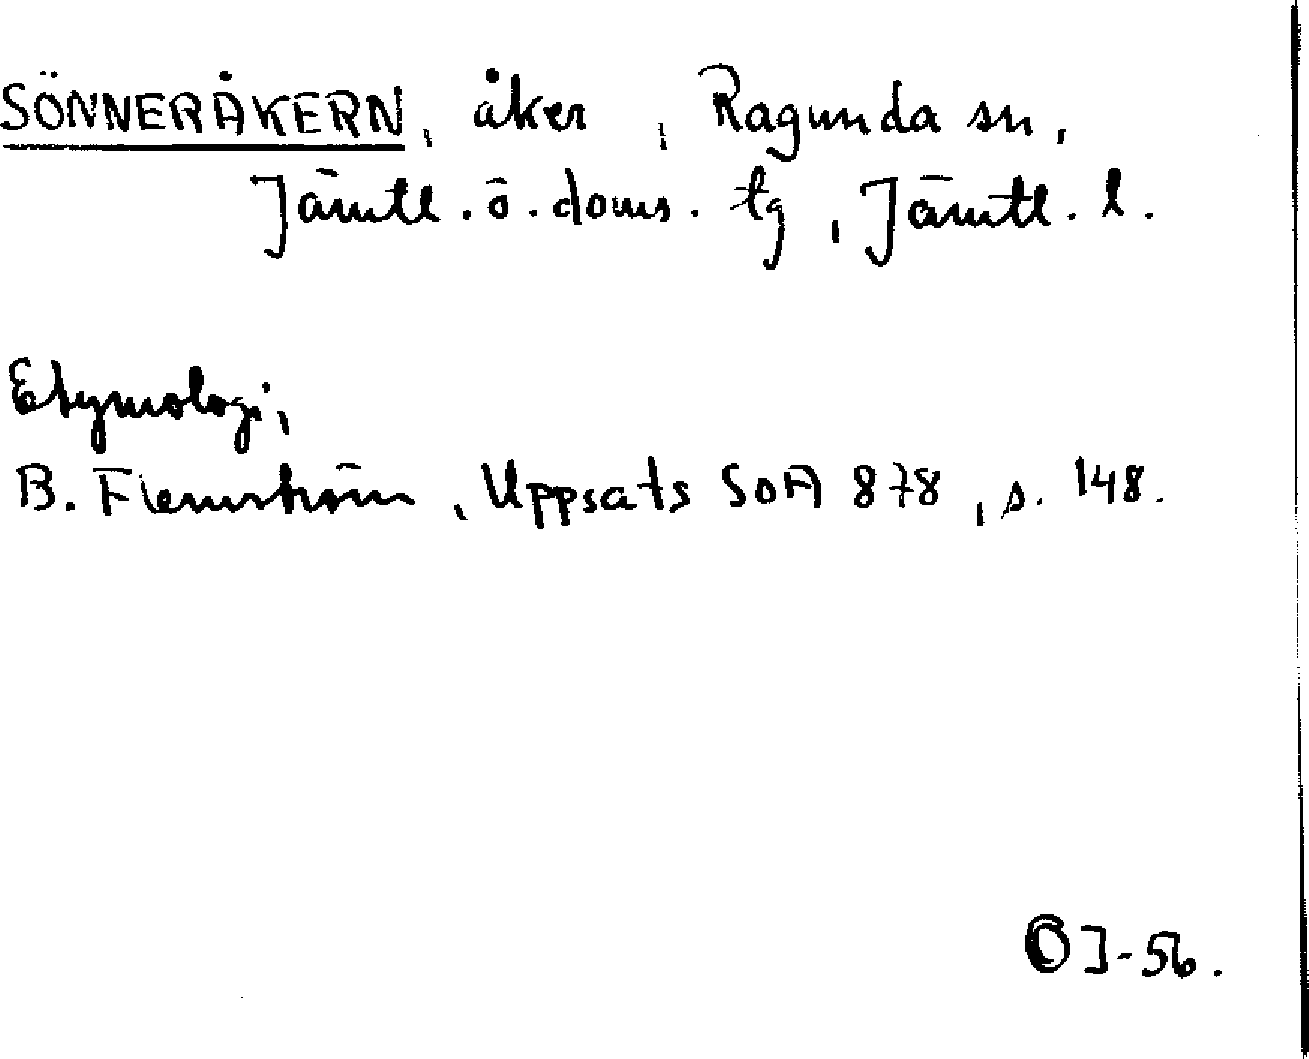 SÖNNERÅKERN, åker, Ragunda sn,
Jämtl. ö. doms. tg, Jämtl. l.
Etymologi,
B. Flemström, Uppsats SOA 878, s. 148.
OJ-56.